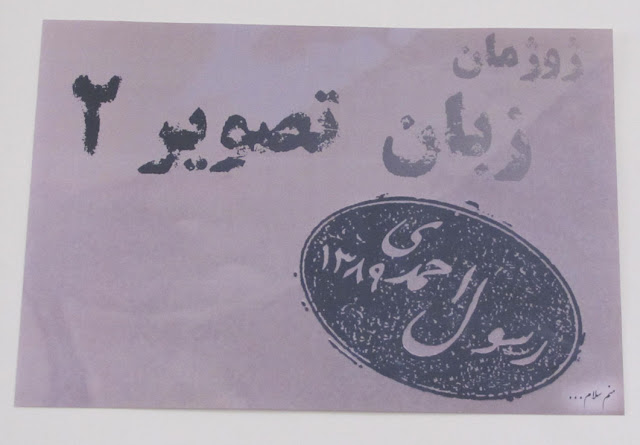 ژوژمان
زبان تصویر ۲
رسول احمدی
۱۳۸۹
منم سلام...